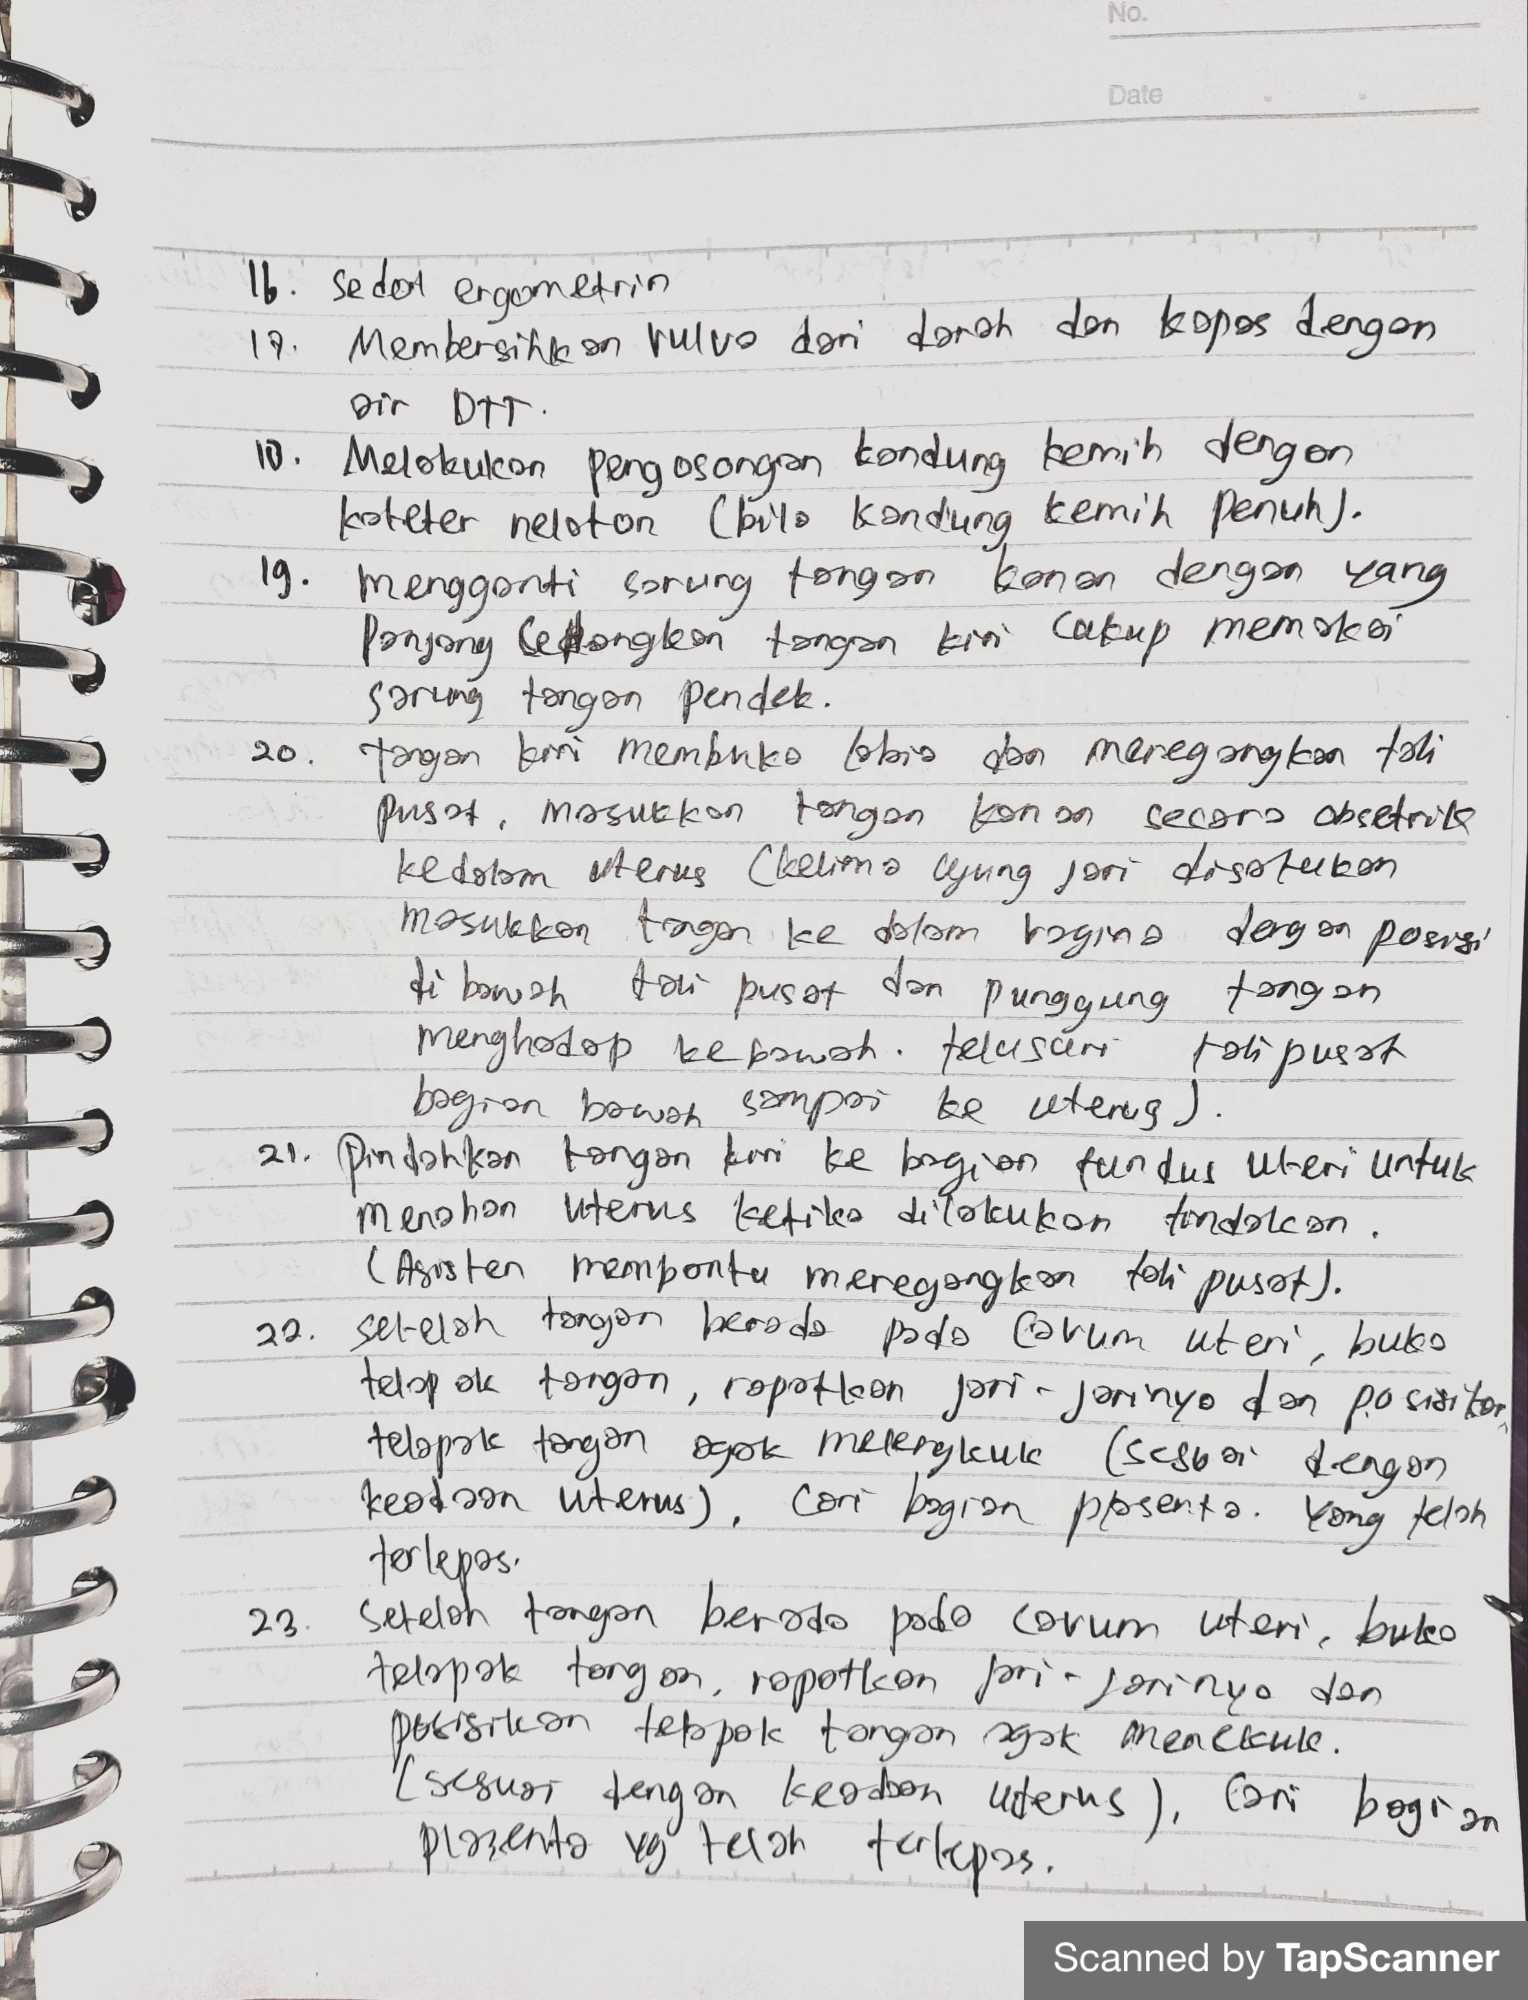 No.
Date
16. Sedot ergometrin
17. Membersihkan vulva dari darah dan kapas dengan
air DTT.
18. Melakukan pengosongan kandung kemih dengan
kateter nelaton (bila kandung kemih penuh).
19. Mengganti sarung tangan kanan dengan yang
panjang sedangkan tangan kiri cukup memakai
sarung tangan pendek.
20. tangan kiri membuka labia dan meregangkan tali
pusat, masukkan tangan kanan secara obsetrik
kedalam uterus (kelima ujung jari disatukan
masukkan tangan ke dalam vagina dengan posisi
di bawah tali pusat dan punggung tangan
menghadap kebawah. telusuri tali pusat
bagian bawah sampai ke uterus).
21. Pindahkan tangan kiri ke bagian fundus uteri untuk
menahan uterus ketika dilakukan tindakan.
(Asisten membantu meregangkan tali pusat).
22. setelah tangan berada pada cavum uteri, buka
telapak tangan, rapatkan jari-jarinya dan posisikan
telapak tangan agak melengkuk (sesuai dengan
keadaan uterus), cari bagian plasenta. yang telah
terlepas.
23. setelah tangan berada pada cavum uteri, buka
telapak tangan, rapatkan jari-jarinya dan
posisikan telapak tangan agak menekuk.
(sesuai dengan keadaan uterus), cari bagian
plasenta yg telah terlepas.
Scanned by TapScanner